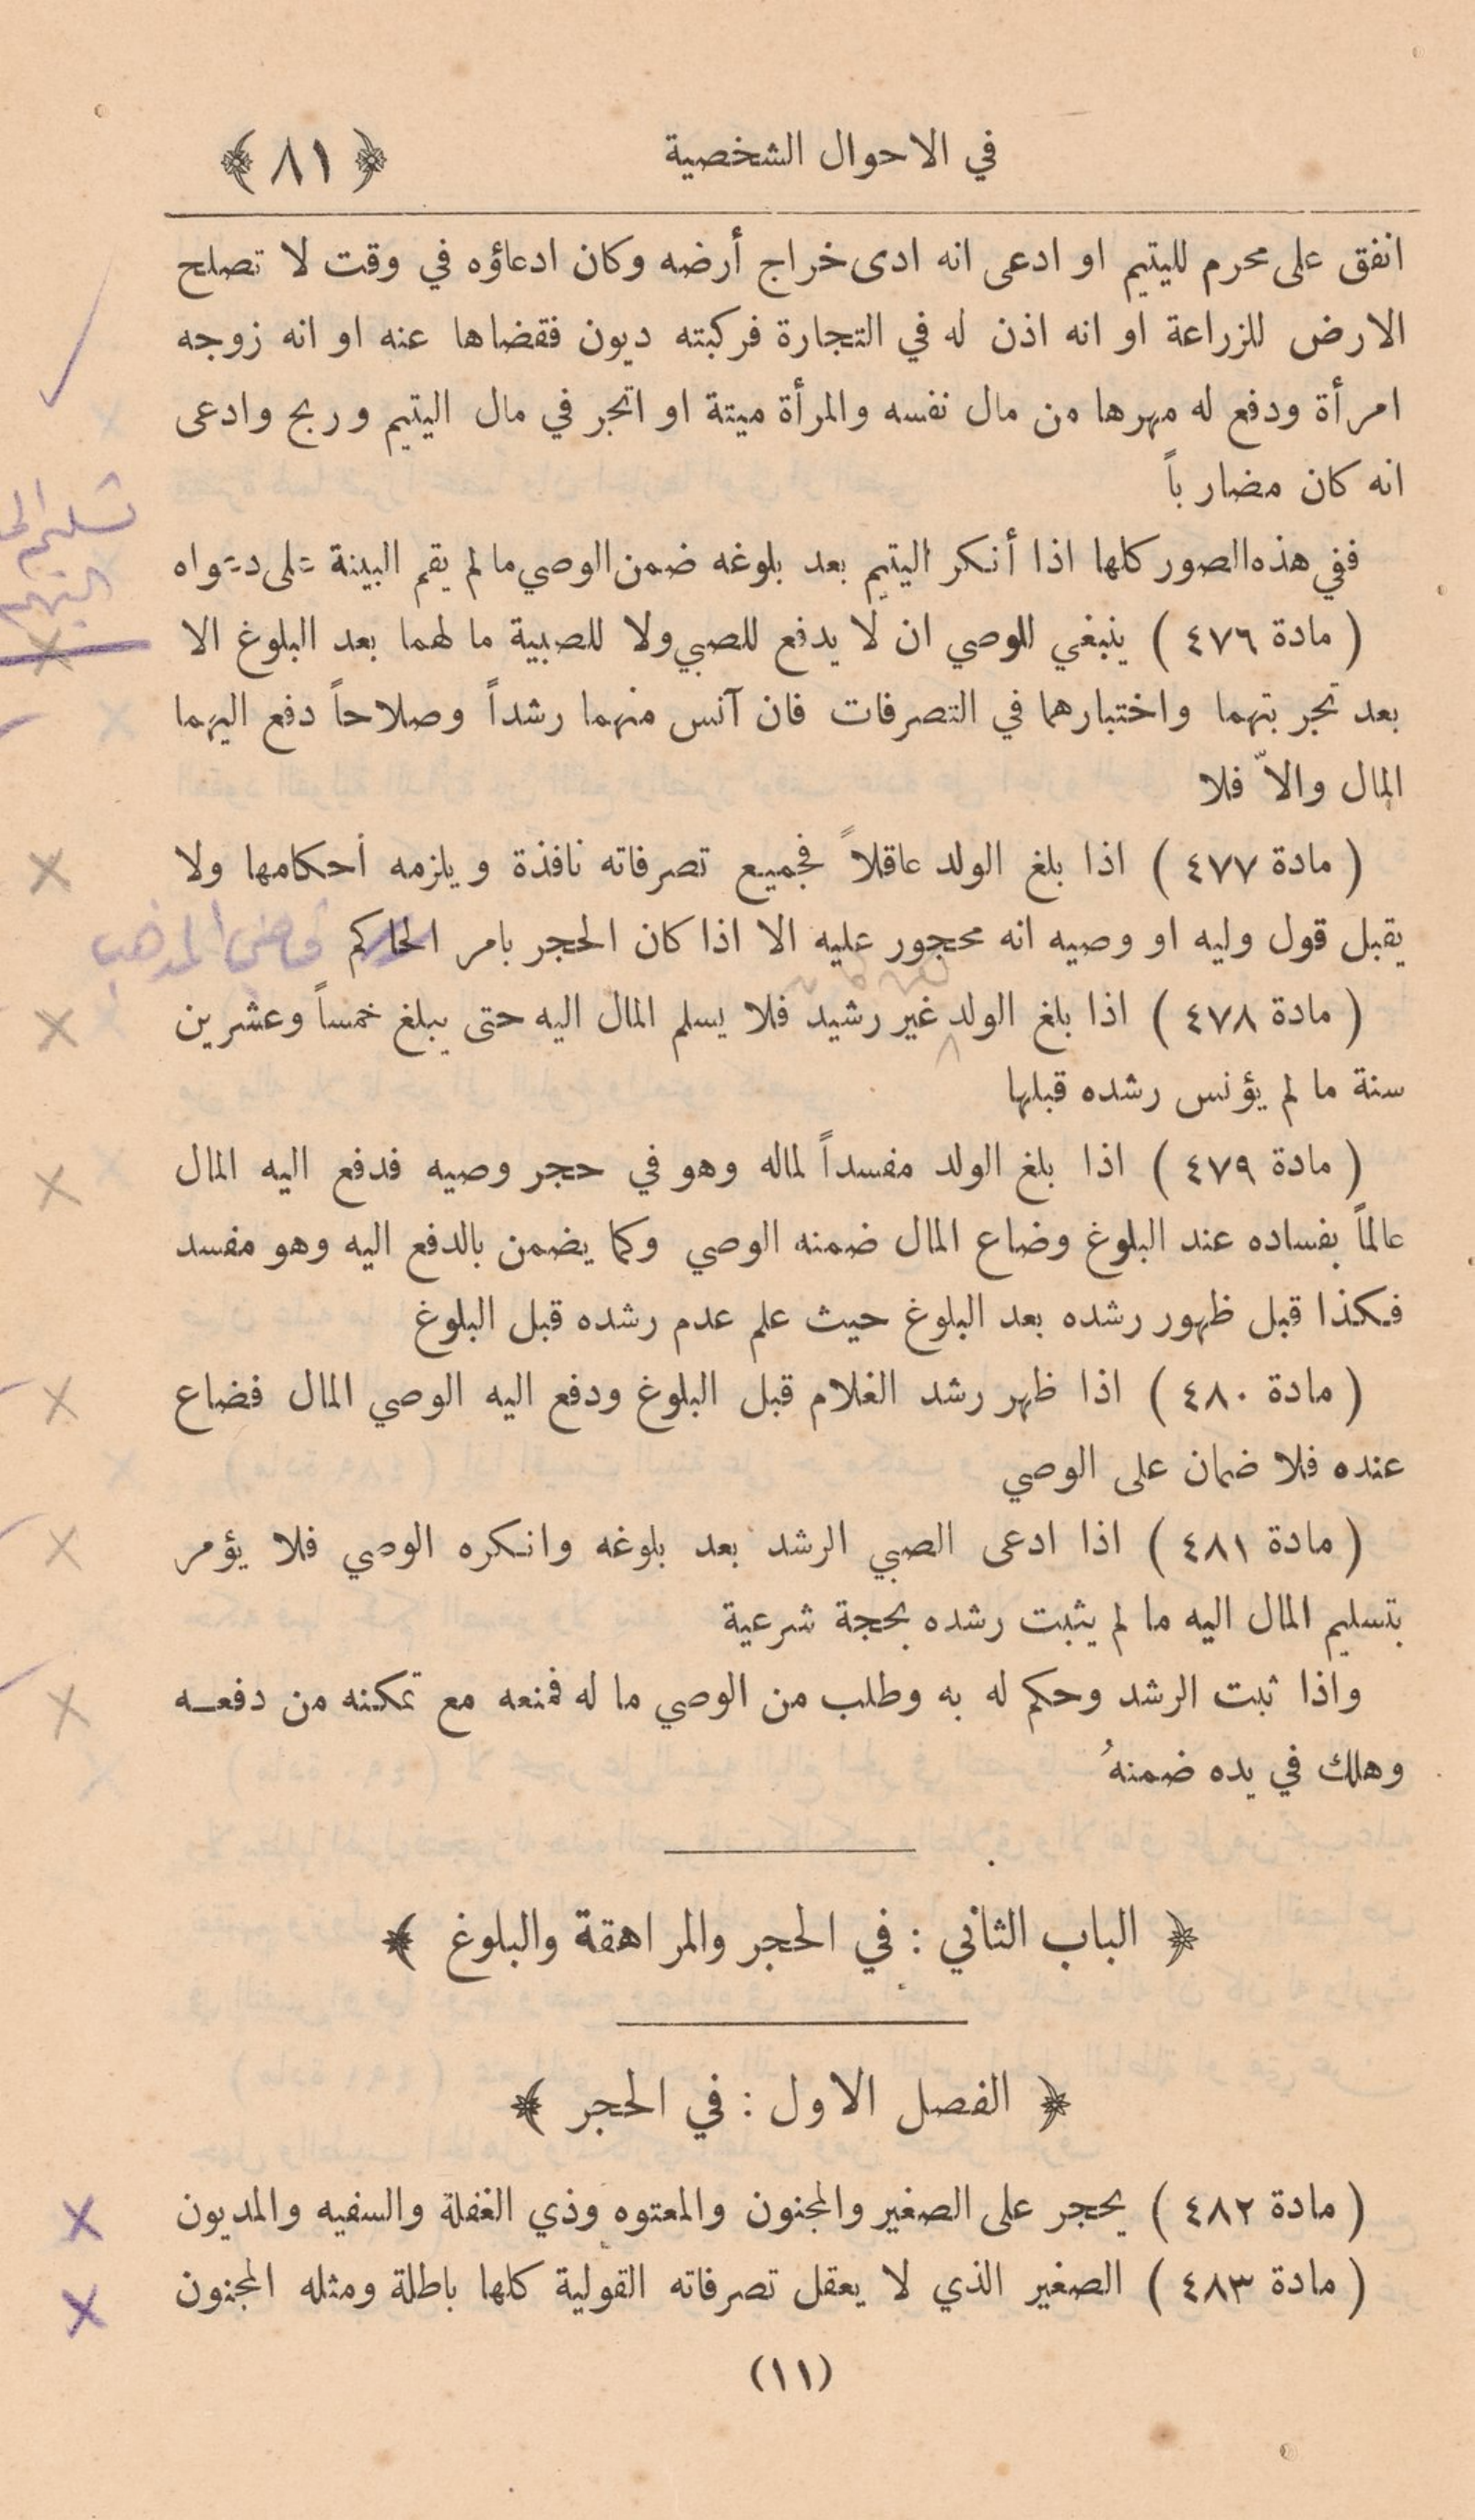 في الاحوال الشخصية ﴿ ٨١ ﴾
انفق على محرم لليتيم او ادعى انه ادى خراج أرضه وكان ادعاؤه في وقت لا تصلح
الارض للزراعة او انه اذن له في التجارة فركبته ديون فقضاها عنه او انه زوجه
امرأة ودفع له مهرها من مال نفسه والمرأة ميتة او اتجر في مال اليتيم وربح وادعى
انه كان مضارباً
ففي هذه الصور كلها اذا أنكر اليتيم بعد بلوغه ضمن الوصي ما لم يقم البينة على دعواه
تسليم
اليتيم
( مادة ٤٧٦ ) ينبغي للوصي ان لا يدفع للصبي ولا للصبية ما لهما بعد البلوغ الا
بعد تجربتهما واختبارهما في التصرفات فان آنس منهما رشداً وصلاحاً دفع اليهما
المال والاّ فلا
( مادة ٤٧٧ ) اذا بلغ الولد عاقلاً فجميع تصرفاته نافذة ويلزمه أحكامها ولا
يقبل قول وليه او وصيه انه محجور عليه الا اذا كان الحجر بامر الحاكم قاضي المذهب
( مادة ٤٧٨ ) اذا بلغ الولد غير رشيد فلا يسلم المال اليه حتى يبلغ خمساً وعشرين
سنة ما لم يؤنس رشده قبلها
( مادة ٤٧٩ ) اذا بلغ الولد مفسداً لماله وهو في حجر وصيه فدفع اليه المال
عالماً بفساده عند البلوغ وضاع المال ضمنه الوصي وكما يضمن بالدفع اليه وهو مفسد
فكذا قبل ظهور رشده بعد البلوغ حيث علم عدم رشده قبل البلوغ
( مادة ٤٨٠ ) اذا ظهر رشد الغلام قبل البلوغ ودفع اليه الوصي المال فضاع
عنده فلا ضمان على الوصي
( مادة ٤٨١ ) اذا ادعى الصبي الرشد بعد بلوغه وانكره الوصي فلا يؤمر
بتسليم المال اليه ما لم يثبت رشده بحجة شرعية
واذا ثبت الرشد وحكم له به وطلب من الوصي ما له فمنعه مع تمكنه من دفعه
وهلك في يده ضمنهُ
﴿ الباب الثاني : في الحجر والمراهقة والبلوغ ﴾
﴿ الفصل الاول : في الحجر ﴾
( مادة ٤٨٢ ) يحجر على الصغير والمجنون والمعتوه وذي الغفلة والسفيه والمديون
( مادة ٤٨٣ ) الصغير الذي لا يعقل تصرفاته القولية كلها باطلة ومثله المجنون
(١١)